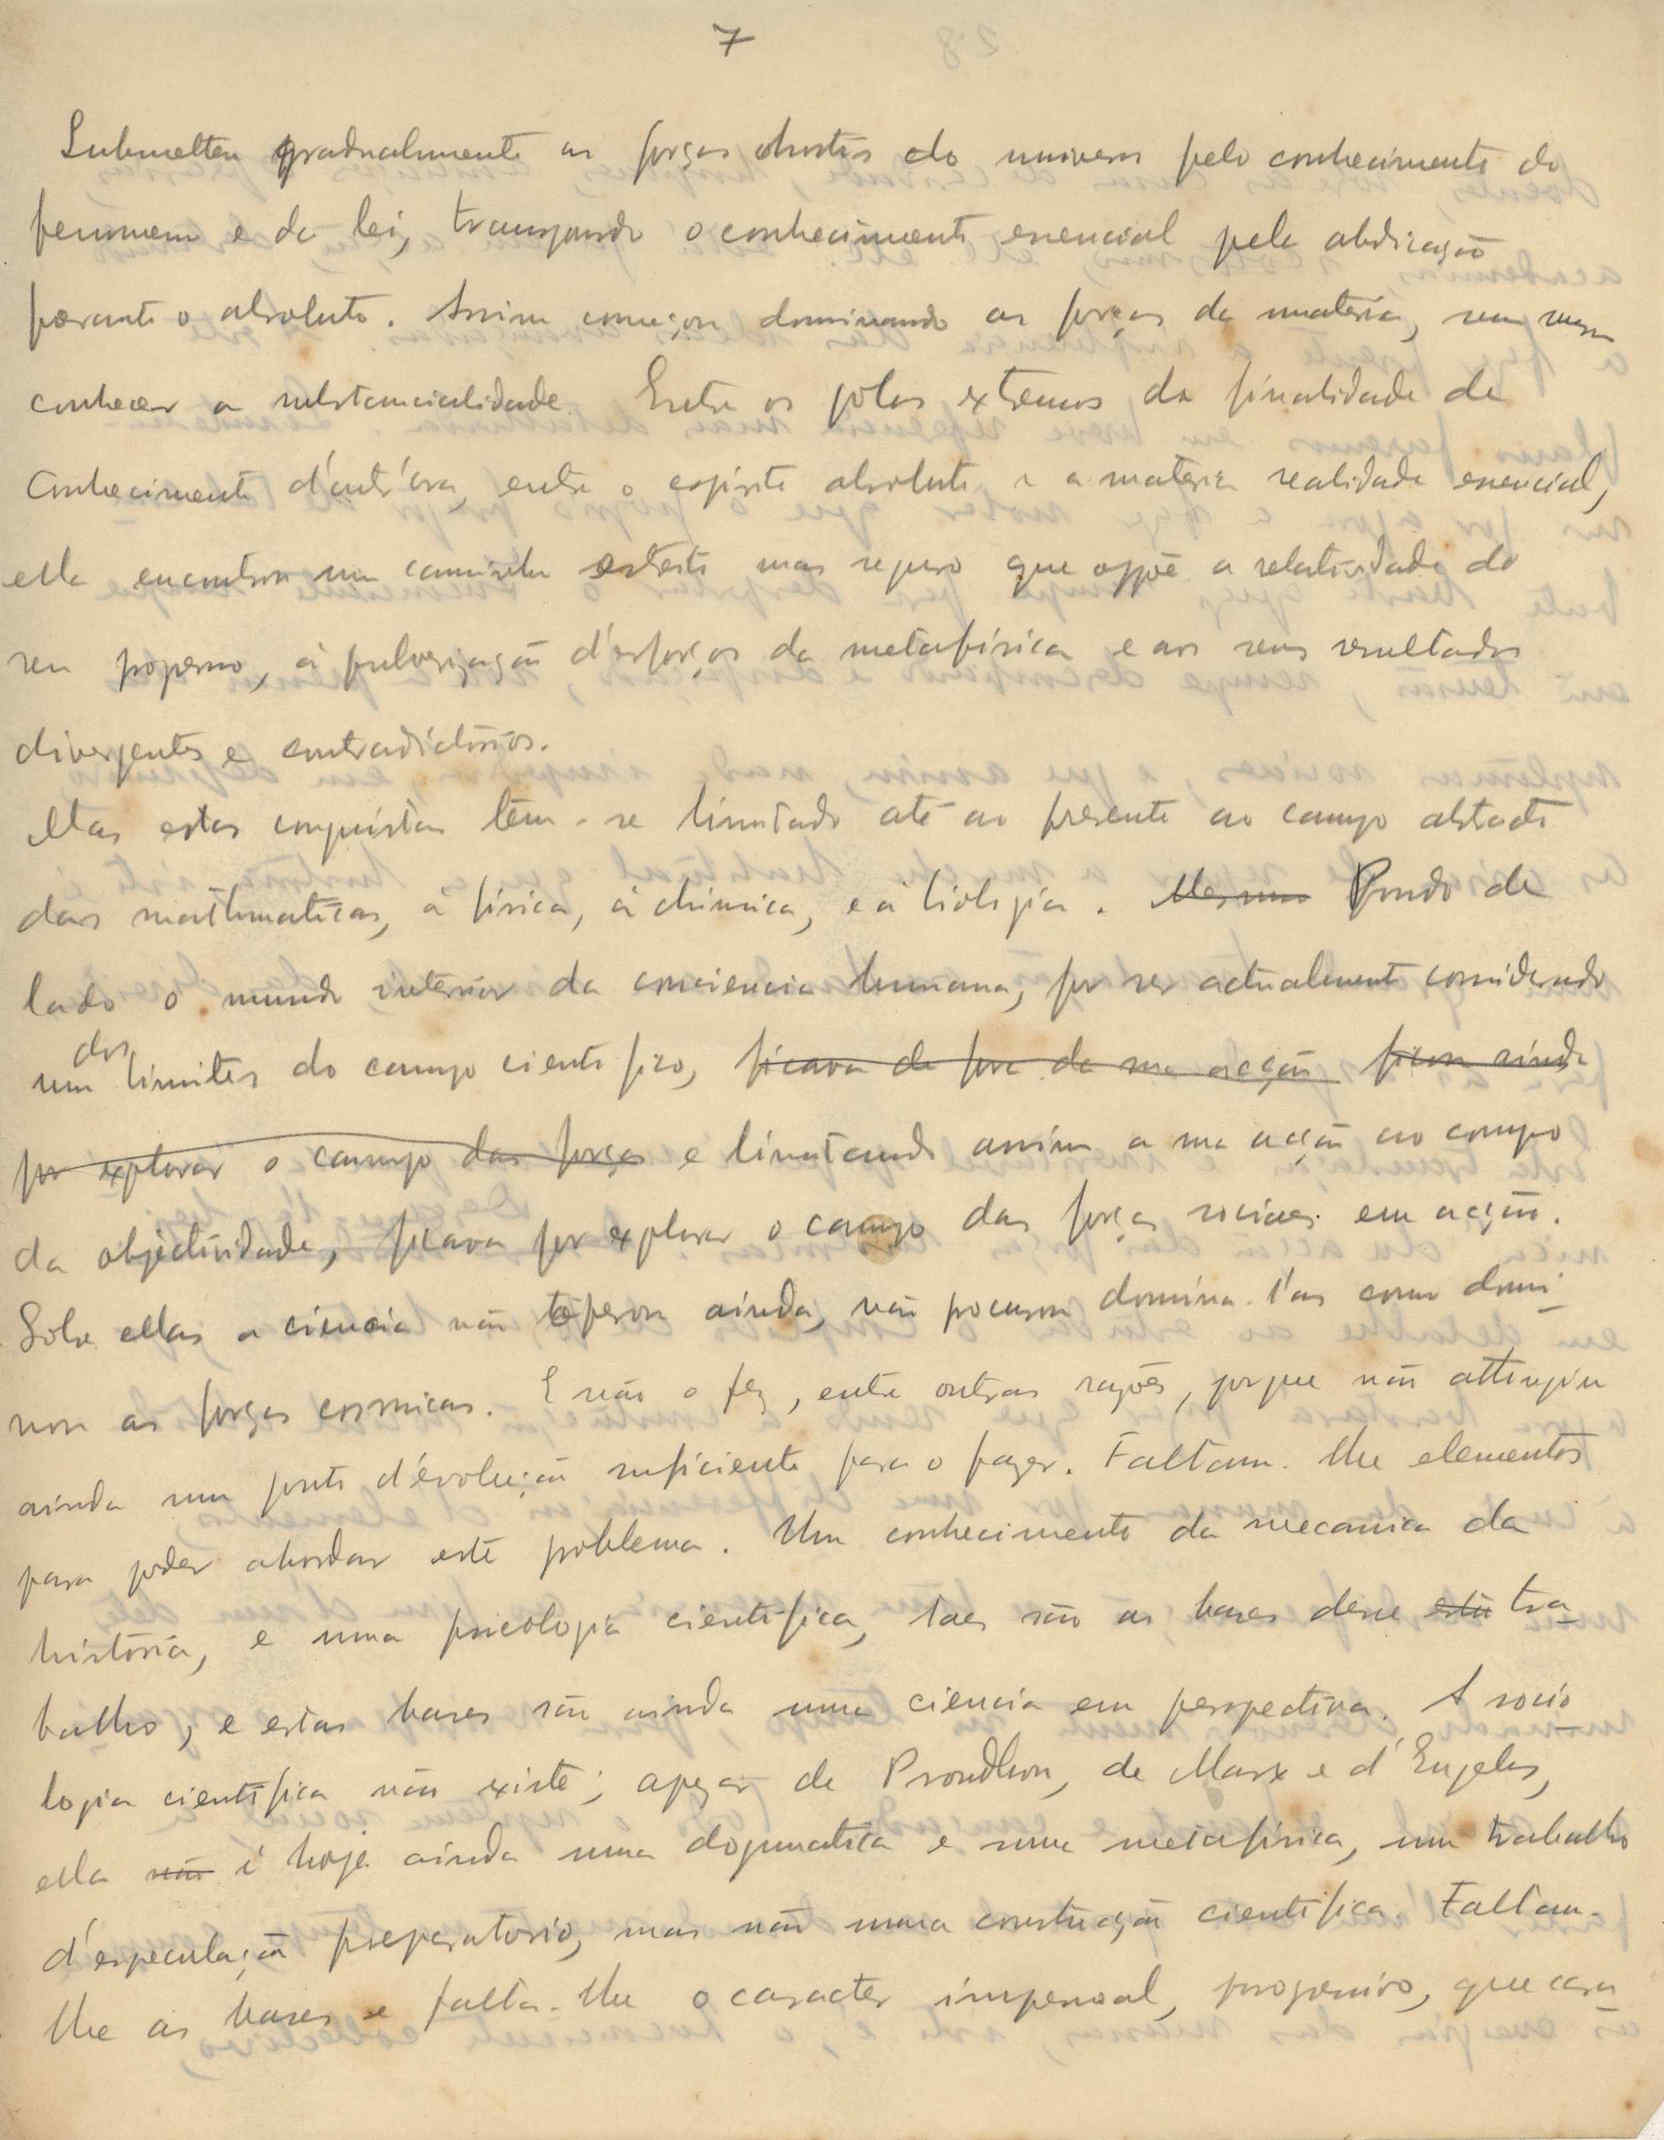 7
Submetteu gradualmente as forças do universo pelo conhecimento do
fenomeno e da lei, o conhecimento essencial pela abdicação
perante o absoluto. Assim começou dominando as forças da materia, sem
conhecer a substancialidade. Entre os pólos extremos da finalidade de
conhecimento d'outr'ora, entre o espirito absoluto e a materia realidade essencial,
ella encontrou um caminho mas seguro que oppõe a relatividade do
seu progresso, á pulverização d'esforços da metafísica e aos seus resultados
divergentes e contradictórios.
Mas estas conquistas têm-se limitado até ao presente ao campo abstracto
das mathematicas, á física, á chimica, e á biologia. Mesmo Pondo de
lado o mundo interior da consciencia humana, por ser actualmente considerado
um dos limites do campo cientifico, ficava de fora da sua acção ficou ainda
por explorar o campo das forças e limitando assim a sua acção ao campo
da objectividade, ficava por explorar o campo das forças sociaes em acção.
Sobre ellas a ciencia não operou ainda, não procurou domina-l'as como domi-
nou as forças cosmicas. E não o fez, entre outras razões, porque não attingiu
ainda um ponto d'évolução suficiente para o fazer. Faltam-lhe elementos
para poder abordar este problema. Um conhecimento da mecanica da
história, e uma psicologia cientifica, taes são as bases desse este tra-
balho, e estas bases são ainda uma ciencia em perspectiva. A socio-
logia cientifica não existe; apezar de Proudhon, de Marx e d'Engels,
ella não é hoje ainda uma dogmatica e uma metafísica, um trabalho
d'especulação preparatorio, mas não uma construcção cientifica. Faltam-
lhe as bases e falta-lhe o caracter impessoal, progressivo, que cara